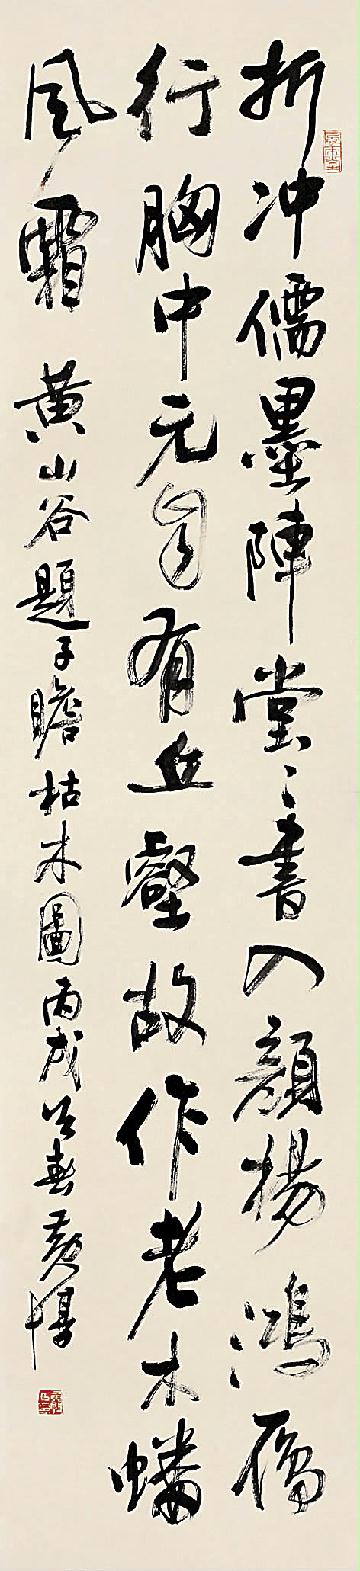 折冲儒墨陣堂〻書入顏楊鴻鴈
行胸中元自有丘壑故作老木蟠
風霜 黃山谷題子瞻枯木圖丙戌春黃惇